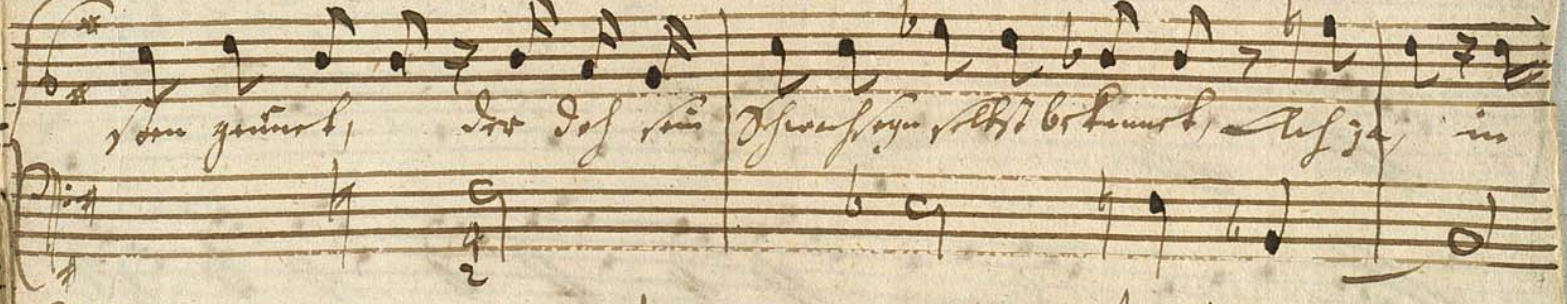 der doch sein Schwachseyn selbst bekennet, Ach ja, in
4
2